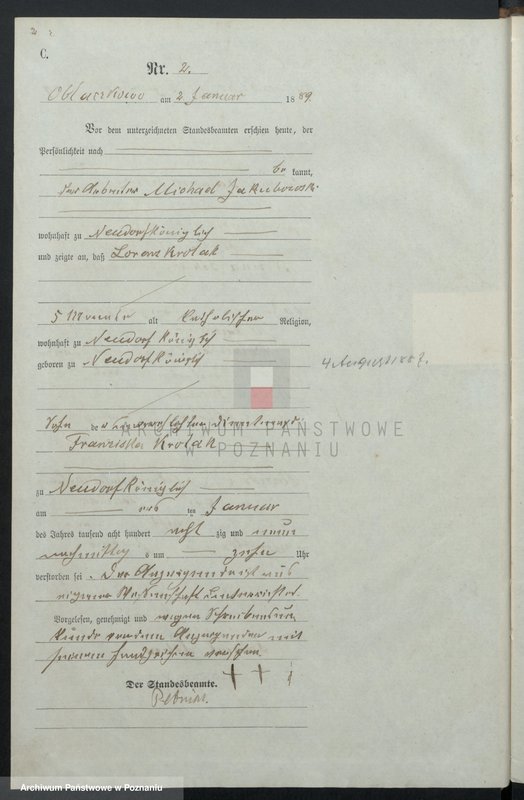 2
C.
Nr. 2.
Obiaczkowo am 2 Januar 1889.
Vor dem unterzeichneten Standesbeamten erschien heute, der
Persönlichkeit nach
be kannt,
der Arbeiter Michael Jakubowski
wohnhaft zu Neudorf Königlich
und zeigte an, daß Lorenz Krolak
5 Monate alt katholischer Religion,
wohnhaft zu Neudorf Königlich
geboren zu Neudorf Königlich
4 August 188
Sohn der unverehelichten Dienstmagd
Franziska Krolak
ARCHIWUM PAŃSTWOWE
W POZNANIU
zu Neudorf Königlich
am ten Januar
des Jahres tausend acht hundert acht zig und neun
nachmittags um zehn Uhr
verstorben sei. Der Anzeigende ist aus
eigener Wissenschaft unterrichtet.
Vorgelesen, genehmigt und wegen Schreibensun
kunde von dem Anzeigenden mit
seinem Handzeichen versehen
+ + +
Der Standesbeamte.
Archiwum Państwowe w Poznaniu